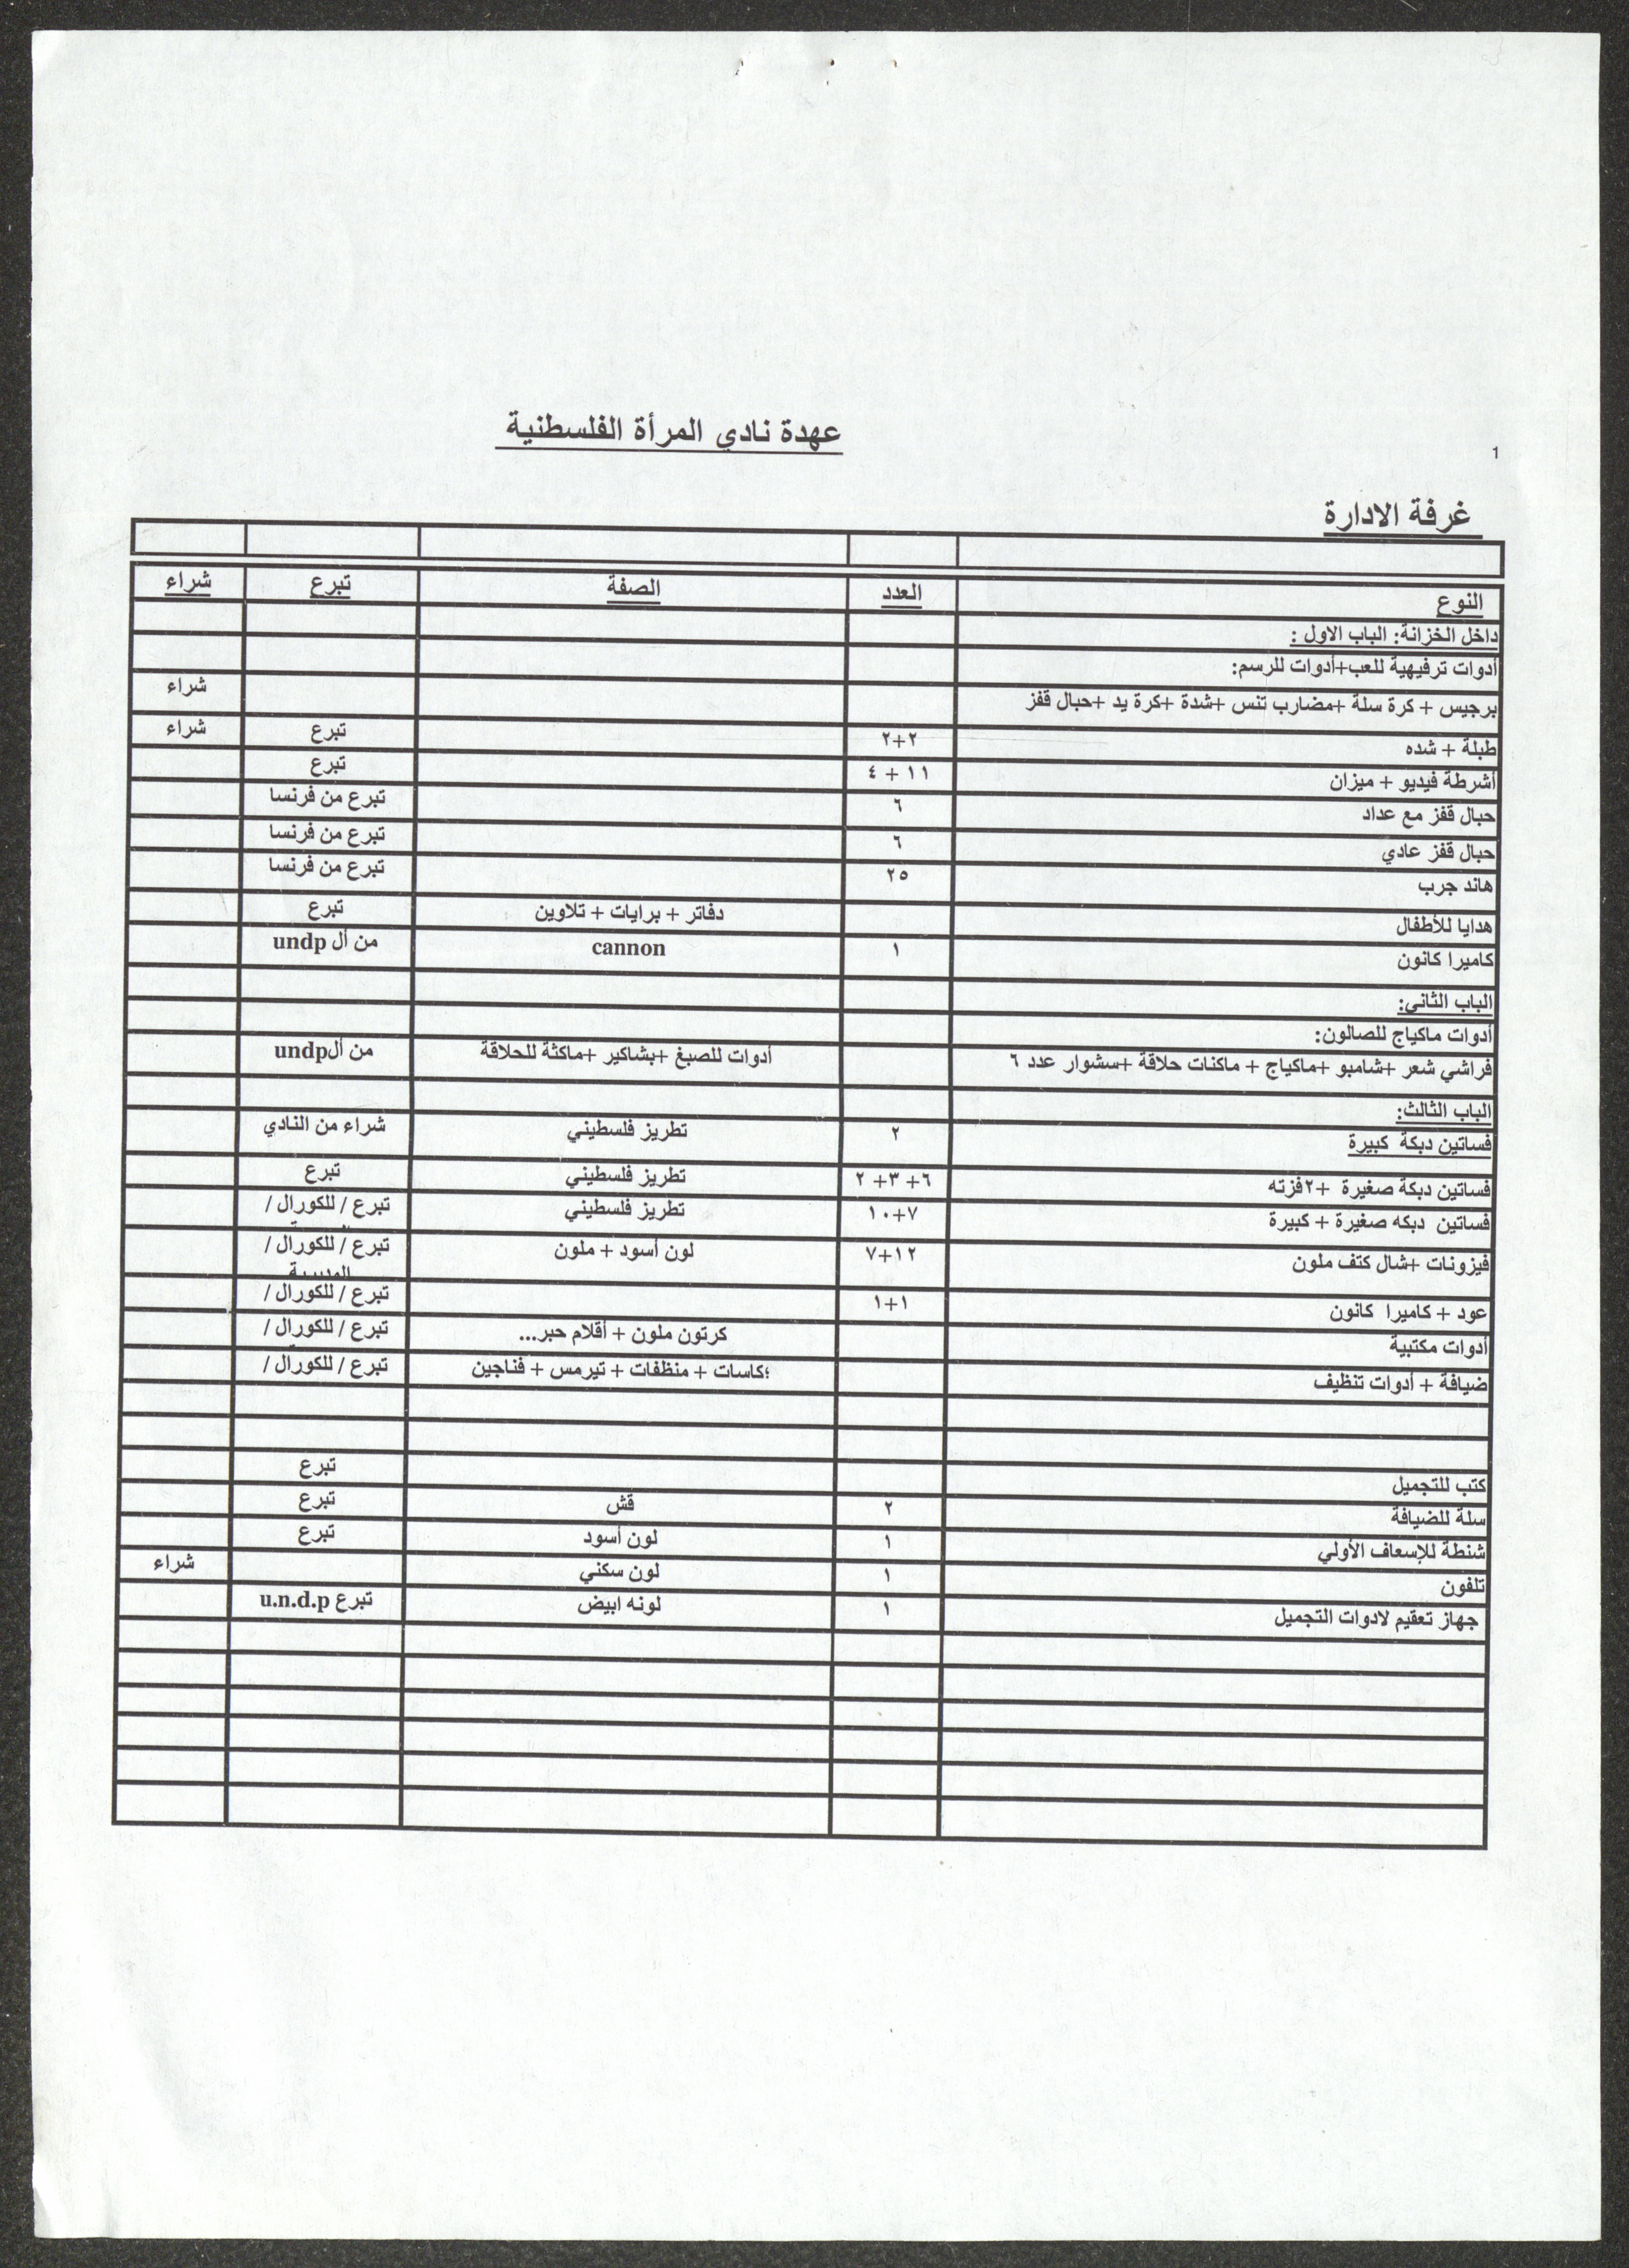 عهدة نادي المرأة الفلسطنية
1
غرفة الادارة
النوع العدد الصفة تبرع شراء
داخل الخزانة: الباب الاول :
أدوات ترفيهية للعب+أدوات للرسم:
برجيس + كرة سلة +مضارب تنس +شدة +كرة يد +حبال قفز شراء
طبلة + شده ٢+٢ تبرع شراء
أشرطة فيديو + ميزان ١١ + ٤ تبرع
حبال قفز مع عداد ٦ تبرع من فرنسا
حبال قفز عادي ٦ تبرع من فرنسا
هاند جرب ٢٥ تبرع من فرنسا
هدايا للأطفال دفاتر + برايات + تلاوين تبرع
كاميرا كانون ١ cannon من أل undp
الباب الثاني:
أدوات ماكياج للصالون:
فراشي شعر +شامبو +ماكياج + ماكنات حلاقة +سشوار عدد ٦ أدوات للصبغ +بشاكير +ماكنة للحلاقة من ألundp
الباب الثالث:
فساتين دبكة كبيرة ٢ تطريز فلسطيني شراء من النادي
فساتين دبكة صغيرة +٢فزته ٦+ ٣+ ٢ تطريز فلسطيني تبرع
فساتين دبكه صغيرة + كبيرة ٧+١٠ تطريز فلسطيني تبرع / للكورال /
فيزونات +شال كتف ملون ١٢+٧ لون أسود + ملون تبرع / للكورال /
عود + كاميرا كانون ١+١ تبرع / للكورال /
أدوات مكتبية كرتون ملون + أقلام حبر... تبرع / للكورال /
ضيافة + أدوات تنظيف ؛كاسات + منظفات + تيرمس + فناجين تبرع / للكورال /
كتب للتجميل تبرع
سلة للضيافة ٢ قش تبرع
شنطة للإسعاف الأولي ١ لون أسود تبرع
تلفون ١ لون سكني شراء
جهاز تعقيم لادوات التجميل ١ لونه ابيض تبرع u.n.d.p